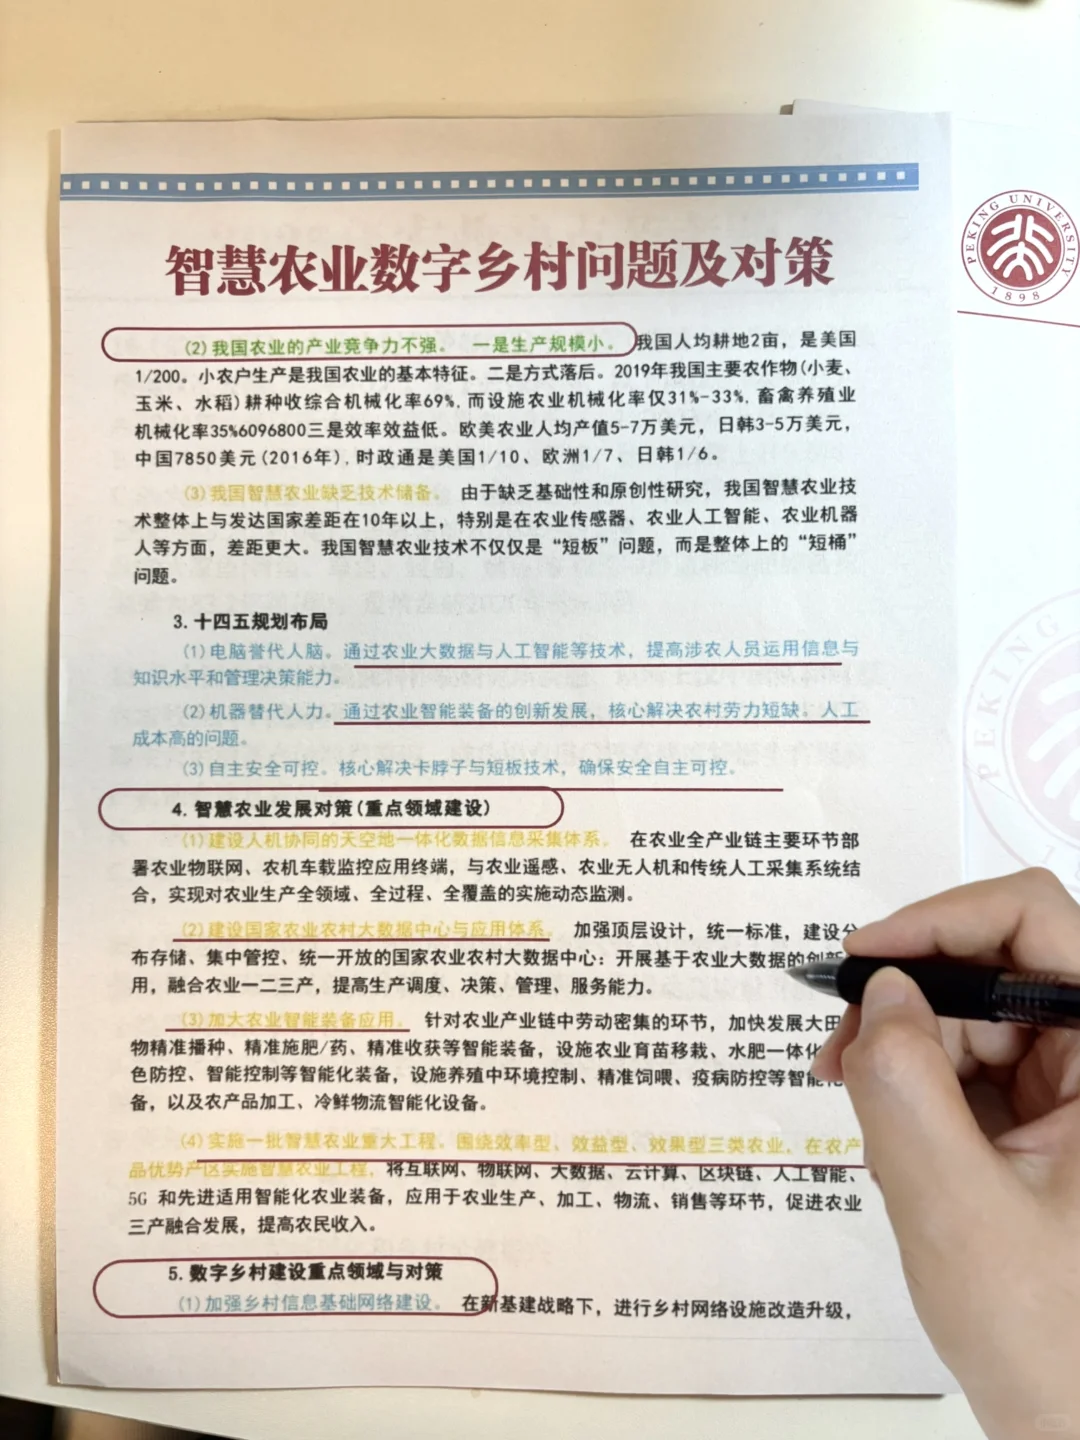 智慧农业数字乡村问题及对策
PEKING UNIVERSITY
1898
(2)我国农业的产业竞争力不强。 一是生产规模小。我国人均耕地2亩，是美国
1/200。小农户生产是我国农业的基本特征。二是方式落后。2019年我国主要农作物(小麦、
玉米、水稻)耕种收综合机械化率69%,而设施农业机械化率仅31%-33%,畜禽养殖业
机械化率35%6096800三是效率效益低。欧美农业人均产值5-7万美元，日韩3-5万美元，
中国7850美元(2016年),时政通是美国1/10、欧洲1/7、日韩1/6。
(3)我国智慧农业缺乏技术储备。 由于缺乏基础性和原创性研究，我国智慧农业技
术整体上与发达国家差距在10年以上，特别是在农业传感器、农业人工智能、农业机器
人等方面，差距更大。我国智慧农业技术不仅仅是“短板”问题，而是整体上的“短桶”
问题。
3.十四五规划布局
(1)电脑誉代人脑。通过农业大数据与人工智能等技术，提高涉农人员运用信息与
知识水平和管理决策能力。
(2)机器替代人力。通过农业智能装备的创新发展，核心解决农村劳力短缺。人工
成本高的问题。
(3)自主安全可控。核心解决卡脖子与短板技术，确保安全自主可控。
4.智慧农业发展对策(重点领域建设)
(1)建设人机协同的天空地一体化数据信息采集体系。 在农业全产业链主要环节部
署农业物联网、农机车载监控应用终端，与农业遥感、农业无人机和传统人工采集系统结
合，实现对农业生产全领域、全过程、全覆盖的实施动态监测。
(2)建设国家农业农村大数据中心与应用体系。 加强顶层设计，统一标准，建设分
布存储、集中管控、统一开放的国家农业农村大数据中心：开展基于农业大数据的创新
用，融合农业一二三产，提高生产调度、决策、管理、服务能力。
(3)加大农业智能装备应用。 针对农业产业链中劳动密集的环节，加快发展大田
物精准播种、精准施肥/药、精准收获等智能装备，设施农业育苗移栽、水肥一体化
色防控、智能控制等智能化装备，设施养殖中环境控制、精准饲喂、疫病防控等智能化
备，以及农产品加工、冷鲜物流智能化设备。
(4)实施一批智慧农业重大工程。围绕效率型、效益型、效果型三类农业，在农产
品优势产区实施智慧农业工程，将互联网、物联网、大数据、云计算、区块链、人工智能、
5G 和先进适用智能化农业装备，应用于农业生产、加工、物流、销售等环节，促进农业
三产融合发展，提高农民收入。
5.数字乡村建设重点领域与对策
(1)加强乡村信息基础网络建设。 在新基建战略下，进行乡村网络设施改造升级，
PEKING